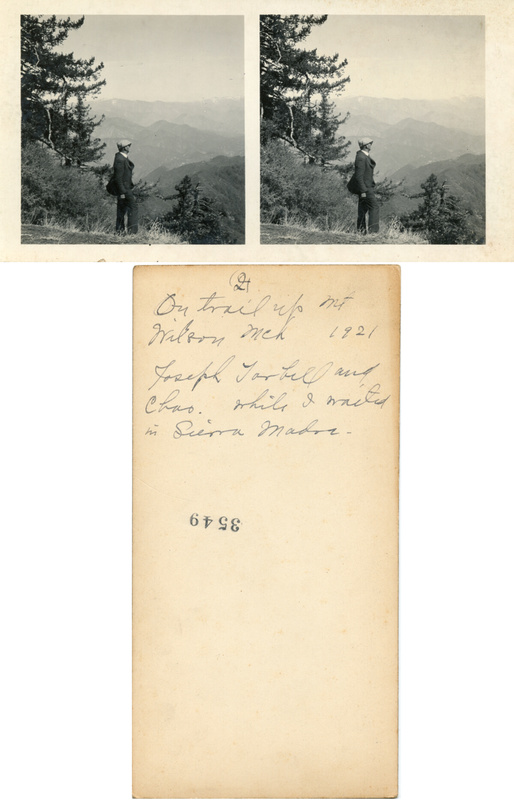 2
On trail up Mt
Wilson Mch 1921
Joseph Tarbell and
Chas. while I waited
in Sierra Madre.
3549